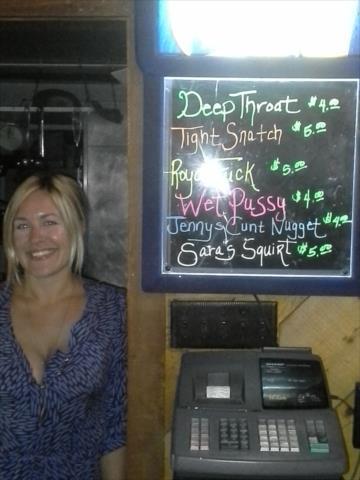 Deep Throat $4.00
Tight Snatch $5.00
Royal Fuck $5.00
Wet Pussy $4.00
Jennys Cunt Nugget $4.00
Sara's Squirt $5.00
SHARP